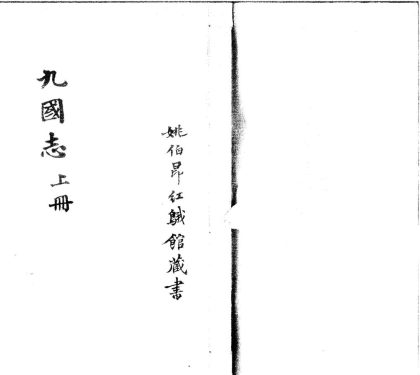 姚伯昂紅䳘館藏書
九國志 上冊